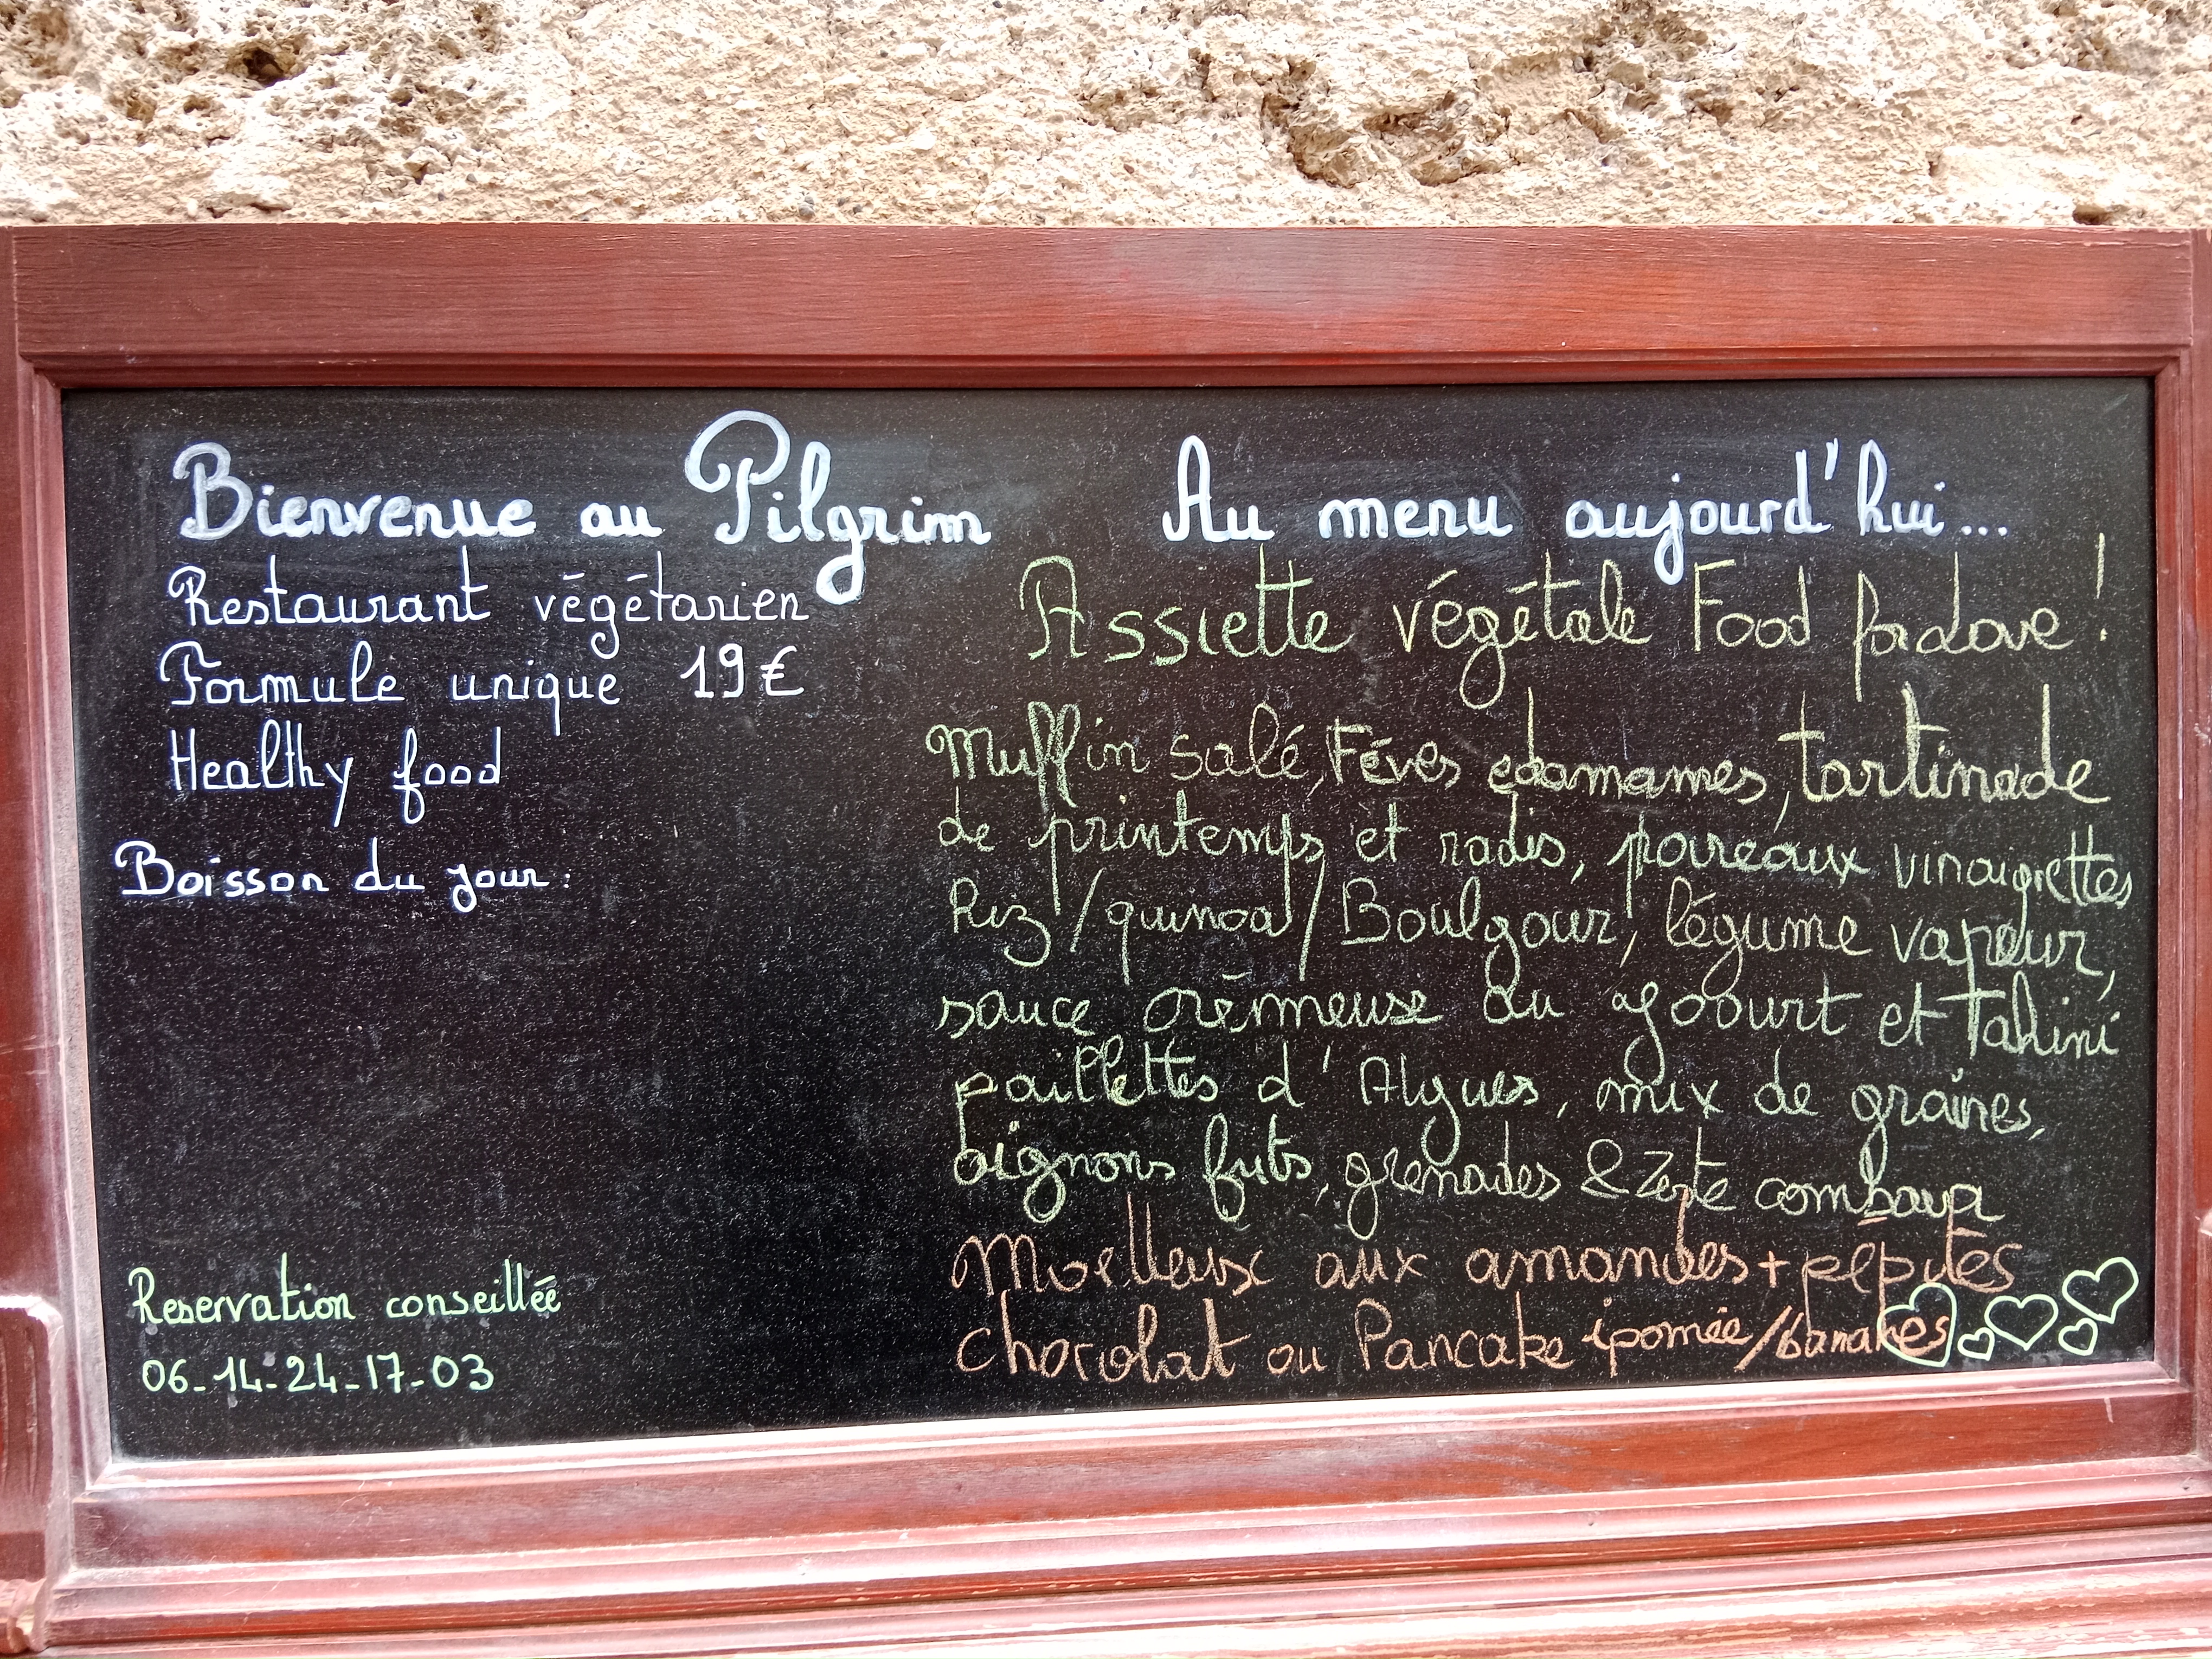 Bienvenue au Pilgrim
Restaurant végétarien
Formule unique 19€
Healthy food
Boisson du jour:
Reservation conseillée
06-14-24-17-03
Au menu aujourd'hui...
Assiette végétale Food for love!
Muffin salé, Fèves edamames, tartinade
de printemps et radis, poireaux vinaigrettes
Riz/quinoa/Boulgour, légume vapeur,
sauce crèmeuse au yoourt et Tahini
paillettes d'Algues, mix de graines,
oignons frits, grenades & Zeste combava
Moelleux aux amandes + pépites
chocolat ou Pancake ipomée/bananes